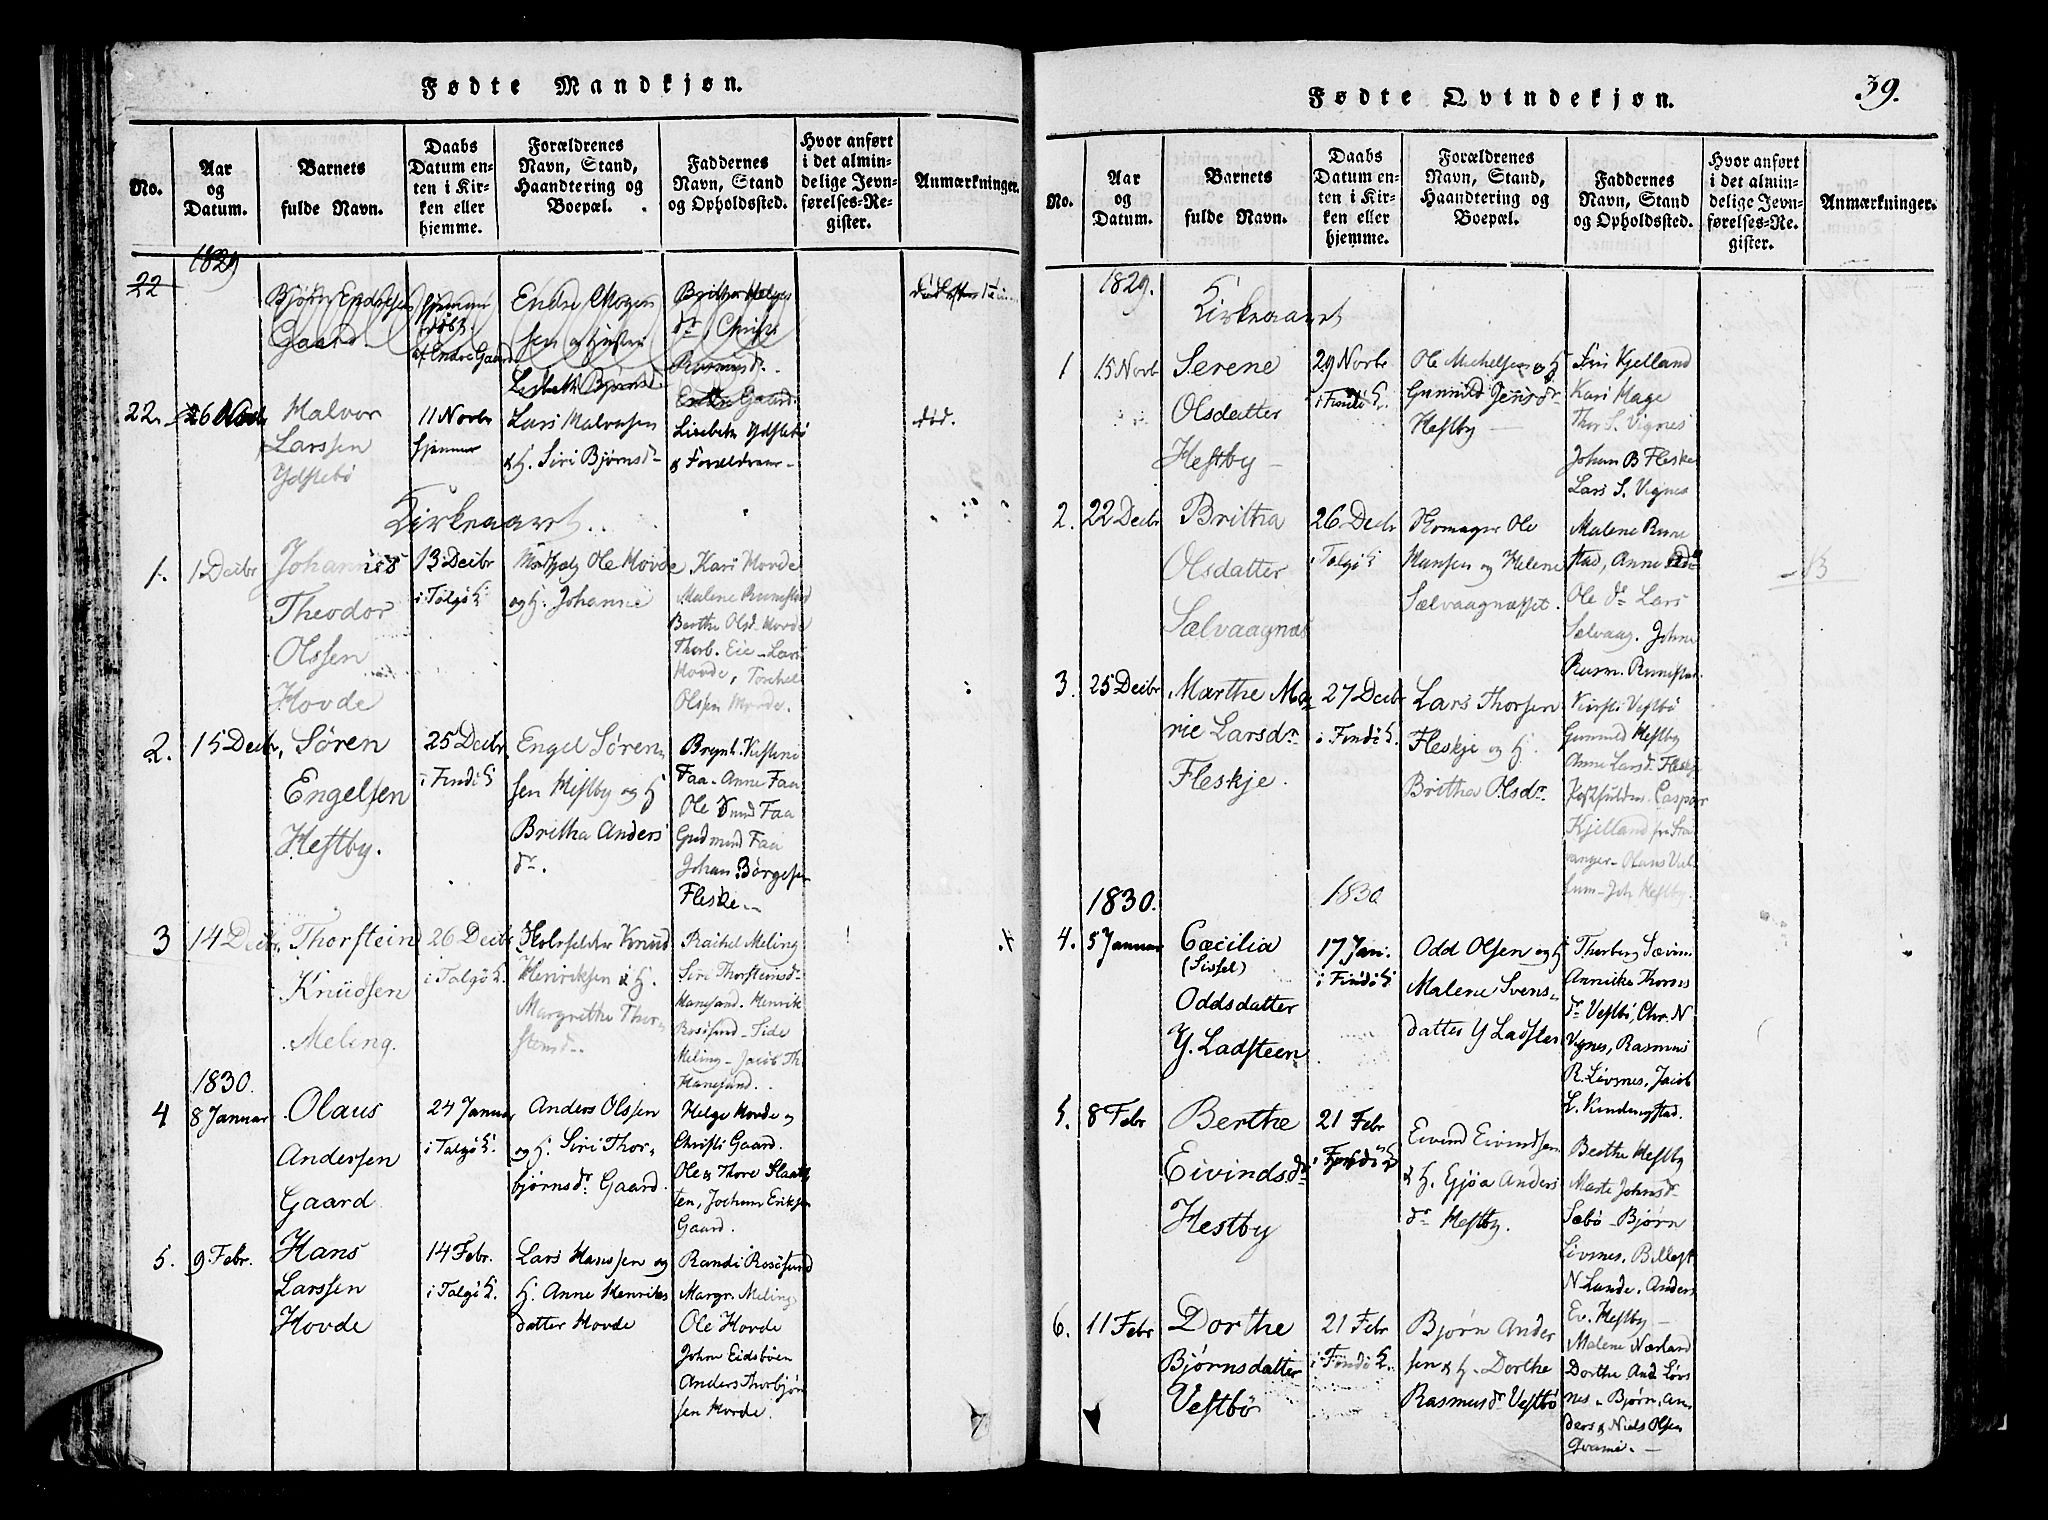 Fødte Mandkjøn.
No.
Aar
og
Datum.
Barnets
fulde Navn.
Daabs
Datum en-
ten i Kir-
ken eller
hjemme.
Forældrenes
Navn, Stand,
Haandtering og
Boepæl.
Faddernes
Navn, Stand
og Opholdssted.
Hvor anført
i det almin-
delige Jevn-
førelses-Re-
gister.
Anmærkninger.
1829
22
Bjørn Endresen
Gaard.
hjemme
døbt
af Endre Gaard
Endre Mogen
sen og hustru
Lisbeth Bjørnsd
Britha Helges
dr, Christi
Rasmusdr.
Endre Gaard.
22.
26
Halvor
Larssen
Ydstebø
11 Novbr
hjemme
Lars Halvorsen
& H. Siri Bjørnsdr
Lisebeth Ydstebø
& Forældrene
død.
Kirkeaaret.
1.
1 Decbr
Johannes
Theodor
Olssen
Hovde
13 Decbr
i Talgø K.
Ole Hovde
og H. Johanne
Kari Hovde
Malene Runestad
Berthe Olsd. Hovde
Thorb. Eie - Lars
Hovde, Torchel
Olssen Hovde.
2.
15 Decbr.
Søren
Engelsen
Hestby.
25 Decbr
i Findø K
Engel Søren
sen Hestby og H
Britha Anders
dr.
Faa - Anne Faa
Ole Faa
Gudmund Faa
Johan Børgesen
Fleske.
3
14 Decbr.
Thorstein
Knudsen
Meling.
26 Decbr
i Talgø K.
Knud
Henriksen & H.
Margrethe Thor-
stensd.
Rachel Meling
Siri Thorsteinsdr
Hanesand - Henrik
Rosøsund - Side
Meling - Jacob Th
Hanesand.
1830.
4
8 Januar
Olaus
Andersen
Gaard
24 Januar
i Talgø K.
Anders Olssen
og H. Siri Thor-
bjørnsdr. Gaard.
Helge Hovde
Christi Gaard.
Ole & Thore Slaat
ten, Jochum Eriksen
Gaard.
5.
9 Febr.
Hans
Larssen
Hovde
14 Febr.
i Talgø K.
Lars Hanssen og
H. Anne Henriks
datter Hovde
Randi Rosøsund
Margr. Meling
Ole Hovde
John Eidsbøen
Anders Thorbjørn
sen Hovde.
Fødte Qvindekjøn.
39.
No.
Aar
og
Datum.
Barnets
fulde Navn.
Daabs
Datum en-
ten i Kir-
ken eller
hjemme.
Forældrenes
Navn, Stand,
Haandtering og
Boepæl.
Faddernes
Navn, Stand
og Opholdssted.
Hvor anført
i det almin-
delige Jevn-
førelses-Re-
gister.
Anmærkninger.
1829.
Kirkeaaret
1
15 Novb
Serene
Olsdatter
Hestby
29 Novbr
i Findø K.
Ole Michelsen og H
Gunnild Jensdr
Hestby
Siri Kjelland
Kari Hage
Thor S. Vignes
Johan B Fleske
Lars S. Vignes
2.
22 Decbr
Britha
Olsdatter
Sælvaagnæs
26 Decbr
i Talgø K
Ole
Hansen og Helene
Sælvaagnæsset.
Malene Rune
stad, Anne
Ole dr Lars
Sælvaag. John
Rasm. Runestad.
3.
25 Decbr
Marthe Ma-
rie Larsdr
Fleskje.
27 Decbr
i Findø K.
Lars Thorsen
Fleskje og H.
Britha Olsdr.
Kirsti Vestbø
Gunnild Hestby
Anne Larsd. Fleskje
Caspar
Kjelland fra Sta
vanger - Olaus
Joh Hestby.
1830.
1830
4.
5 Januar
Cæcilia
(Sissel)
Oddsdatter
Y. Ladsteen
17 Jan.
i Findø K
Odd Olsen og H
Malene Svens-
datter Y Ladsten
Thorberg
Annike Thores
dr Vestbø, Chr. N
Vignes, Rasmus
R. Livsnes, Jacob
L. Kindingstad.
5.
8 Febr
Berthe
Eivindsdr
Hestby
21 Febr
i Findø K
Eivind Eivindsen
& H. Gjøa Anders
dr Hestby.
Berthe Hestby
Marte Johnsdr
Sæbø - Bjørn
Livsnes. Billest
N Lande. Anders
Ev. Hestby
6.
11 Febr
Dorthe
Bjørnsdatter
Vestbø
21 Febr
i Findø K.
Bjørn Ander
sen & H. Dorthe
Rasmusdr Vestbø
Malene Nærland
Dorthe And Livs
nes, Bjørn, An-
ders & Niels Olsen
Qvame.